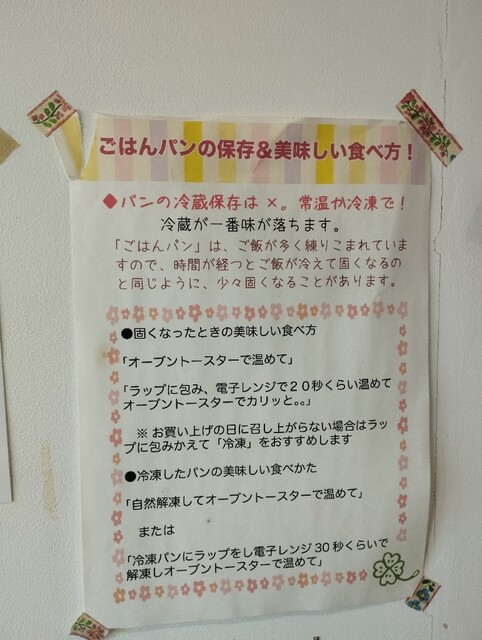 ごはんパンの保存&美味しい食べ方!
◆パンの冷蔵保存は×。常温か冷凍で!
冷蔵が一番味が落ちます。
「ごはんパン」は、ご飯が多く練りこまれていま
すので、時間が経つとご飯が冷えて固くなるの
と同じように、少々固くなることがあります。
●固くなったときの美味しい食べ方
「オーブントースターで温めて」
「ラップに包み、電子レンジで20秒くらい温めて
オーブントースターでカリッと。。」
※ お買い上げの日に召し上がらない場合はラッ
プに包みかえて「冷凍」をおすすめします
●冷凍したパンの美味しい食べかた
「自然解凍してオーブントースターで温めて」
または
「冷凍パンにラップをし電子レンジ30秒くらいで
解凍しオーブントースターで温めて」